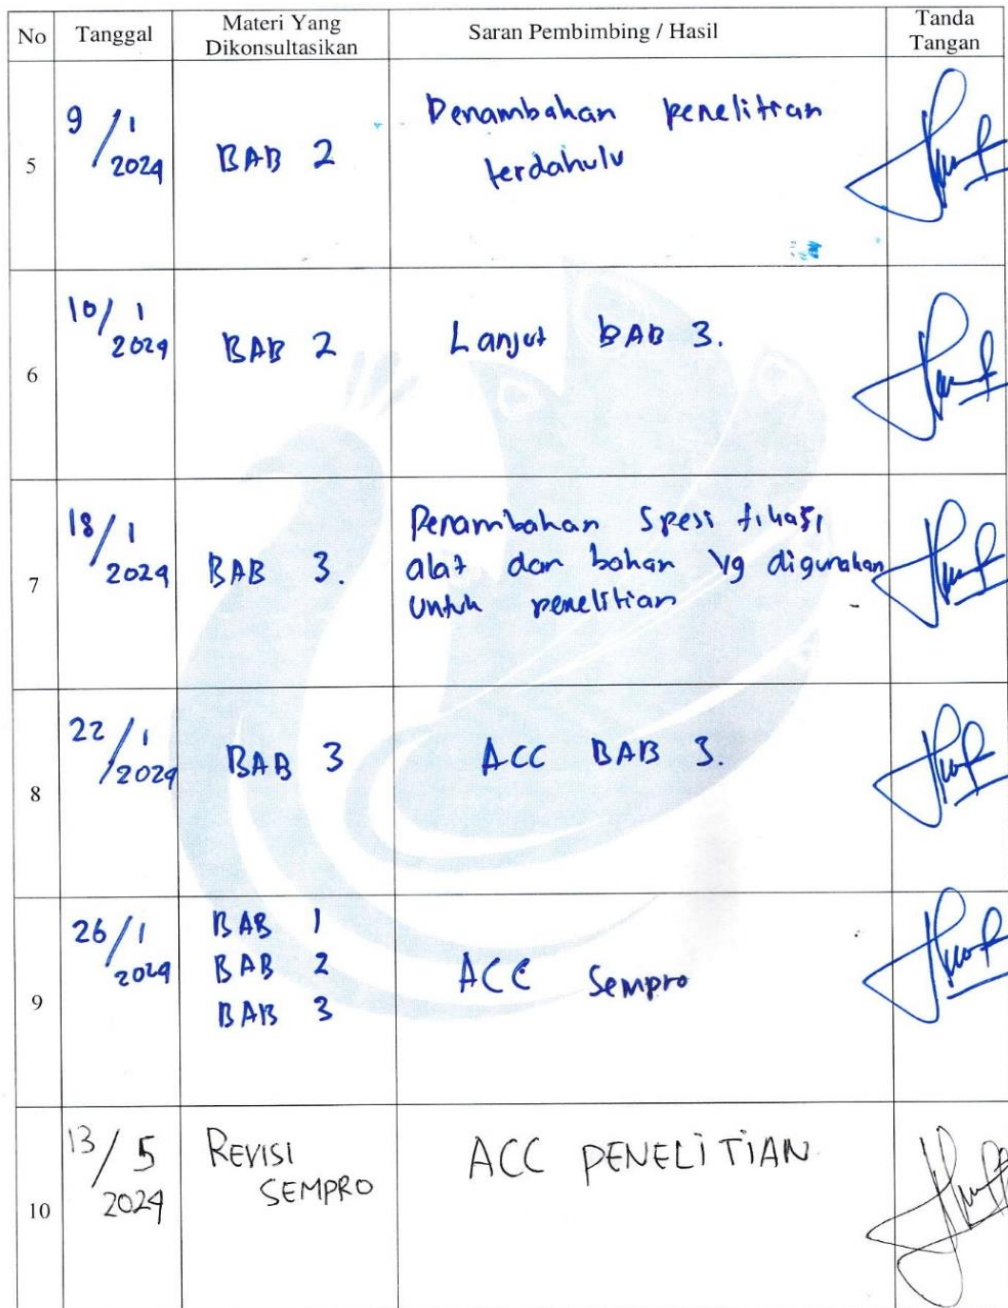 No Tanggal Materi Yang Dikonsultasikan Saran Pembimbing / Hasil Tanda Tangan
5 9/1 2024 BAB 2 Penambahan penelitian
terdahulu
6 10/1 2024 BAB 2 Lanjut BAB 3.
7 18/1 2024 BAB 3. Penambahan Spesifikasi
alat dan bahan yg digunakan
untuk penelitian
8 22/1 2024 BAB 3 ACC BAB 3.
9 26/1 2024 BAB 1
BAB 2
BAB 3
ACC Sempro
10 13/5 2024 REVISI
SEMPRO
ACC PENELITIAN